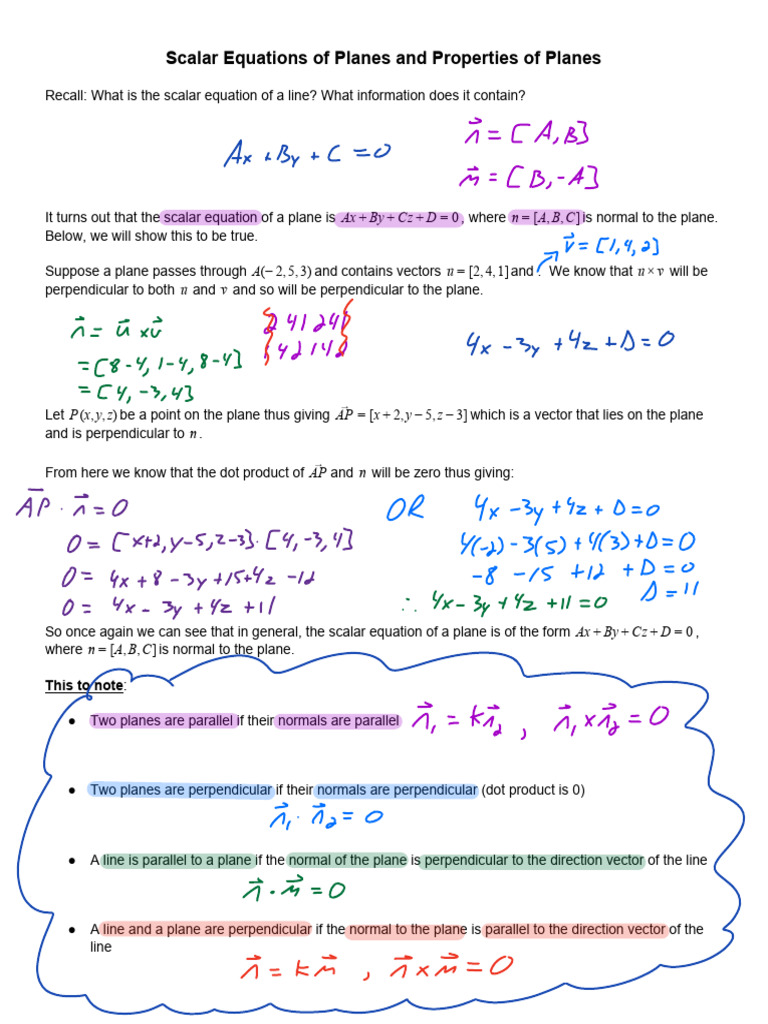 Scalar Equations of Planes and Properties of Planes
Recall: What is the scalar equation of a line? What information does it contain?
Ax + By + C = 0
n⃗ = [A, B]
m⃗ = [B, -A]
It turns out that the scalar equation of a plane is Ax + By + Cz + D = 0 , where n = [A, B, C] is normal to the plane.
Below, we will show this to be true.
v⃗ = [1, 4, 2]
Suppose a plane passes through A(– 2, 5, 3) and contains vectors u = [2, 4, 1] and . We know that u × v will be
perpendicular to both u and v and so will be perpendicular to the plane.
n⃗ = u⃗ x v⃗
= [8-4, 1-4, 8-4]
= [4, -3, 4]
2 4 1 2 4 1
1 4 2 1 4 2
4x - 3y + 4z + D = 0
Let P(x, y, z) be a point on the plane thus giving AP⃗ = [x + 2, y – 5, z – 3] which is a vector that lies on the plane
and is perpendicular to n .
From here we know that the dot product of AP⃗ and n will be zero thus giving:
AP⃗ · n⃗ = 0
0 = [x+2, y-5, z-3] · [4, -3, 4]
0 = 4x + 8 - 3y + 15 + 4z - 12
0 = 4x - 3y + 4z + 11
OR 4x - 3y + 4z + D = 0
4(-2) - 3(5) + 4(3) + D = 0
-8 - 15 + 12 + D = 0
D = 11
∴ 4x - 3y + 4z + 11 = 0
So once again we can see that in general, the scalar equation of a plane is of the form Ax + By + Cz + D = 0 ,
where n = [A, B, C] is normal to the plane.
This to note:
● Two planes are parallel if their normals are parallel n⃗₁ = kn⃗₂ , n⃗₁ x n⃗₂ = 0
● Two planes are perpendicular if their normals are perpendicular (dot product is 0)
n⃗₁ · n⃗₂ = 0
● A line is parallel to a plane if the normal of the plane is perpendicular to the direction vector of the line
n⃗ · m⃗ = 0
● A line and a plane are perpendicular if the normal to the plane is parallel to the direction vector of the
line
n⃗ = km⃗ , n⃗ x m⃗ = 0